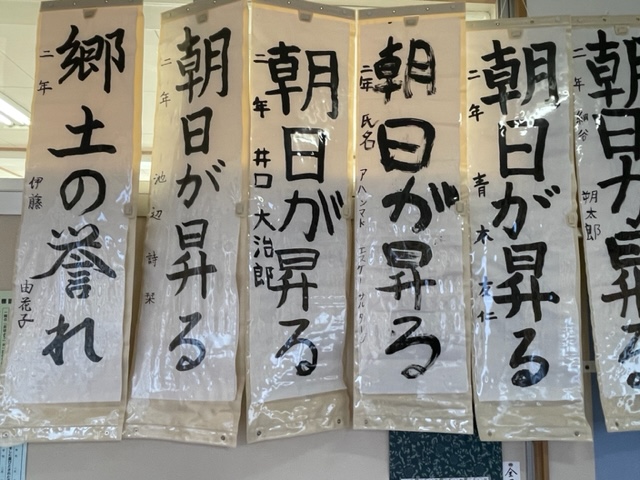 郷土の誉れ
二年 伊藤 由花子
朝日が昇る
二年 池辺 詩栞
朝日が昇る
二年 井口 大治郎
朝日が昇る
二年 氏名 アハンマド
朝日が昇る
二年 青木 友仁
朝日が昇る
二年 細谷 朔太郎